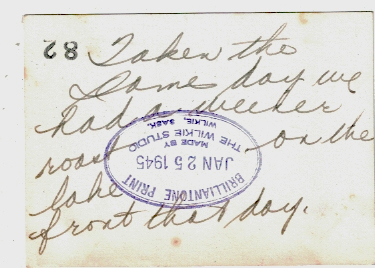 82
Taken the
same day we
had a weener
roast on the
lake
front that day.
BRILLIANTONE PRINT
JAN 25 1945
MADE BY
THE WILKIE STUDIO
WILKIE, SASK.